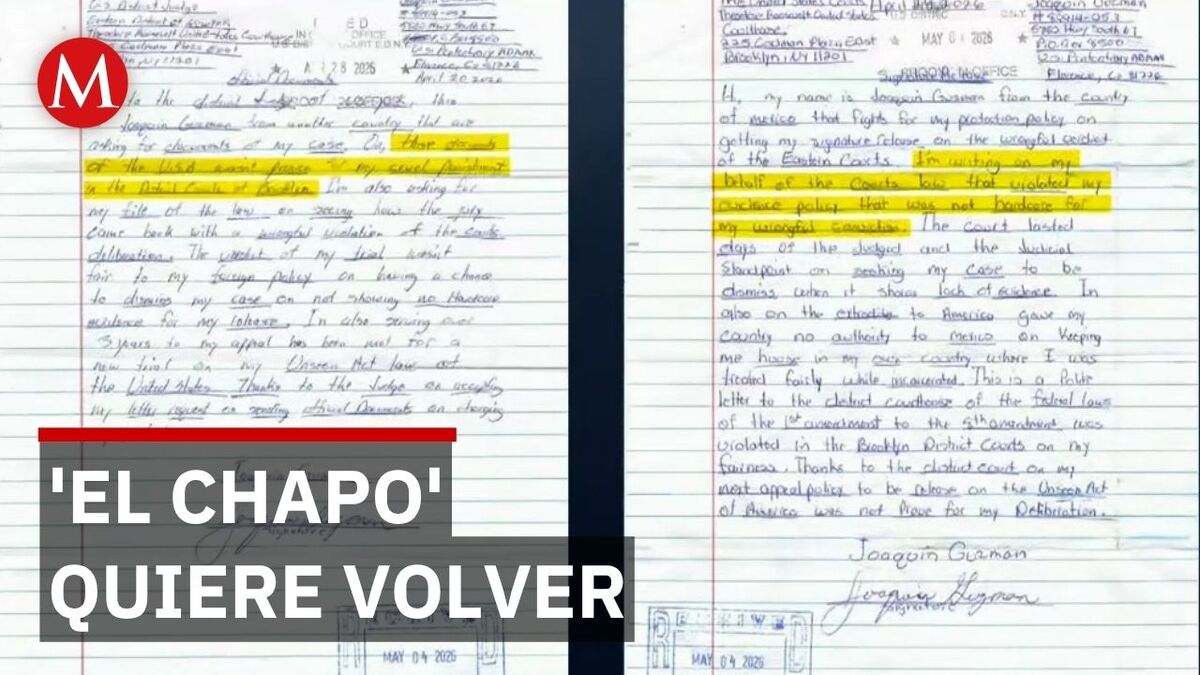 U.S. District Judge
Eastern District of
Theodore Roosevelt United States Courthouse
225 Cadman Plaza East
Brooklyn, NY 11201
Joaquin Guzman
# 89914-053
5880 Hwy South 67
Florence, Co 81226
April 20, 2026
28 2026
OFFICE
COURT E.D.N.Y.
To the
Joaquin Guzman from another country that are
asking for documents of my case, On, those documents
of the U.S.A wasn't prove for my cruel punishment
in the District Courts of Brooklyn. I'm also asking for
my file of the law on seeing how the jury
came back with a wrongful violation of the courts
deliberation. The verdict of my trial wasn't
fair to my foreign policy on having a chance
to dismiss my case on not showing no Hardcore
evidence for my release. In also serving over
years to my appeal has been met for a
new trial on my Unseen Act law at
the United States. Thanks to the Judge on accepting
my letter request on sending official Documents on changing
signature
MAY 04 2026
M
'EL CHAPO'
QUIERE VOLVER
The United States Courts
Theodore Roosevelt United States
Courthouse,
225 Cadman Plaza East
Brooklyn, NY 11201
April 2026
MAY 01 2026
OFFICE
Joaquin Guzman
# 89914-053
5880 Hwy South 67
P.O. Box 8500
U.S Penitentiary ADMAX
Florence, Co 81226
Hi, my name is Joaquin Guzman from the country
of mexico that fights for my protection policy on
getting my signature release on the wrongful verdict
of the Eastern Courts. I'm writing on my
behalf of the Courts law that violated my
evidence policy that was not hardcore for
my wrongful conviction. The Court lasted
days of the Judged and the Judicial
Standpoint on seeking my case to be
dismiss when it shows lack of evidence. In
also on the extradite to America gave my
country no authority to mexico on keeping
me house in my own country where I was
treated fairly while incarcerated. This is a Public
letter to the district courthouse of the federal laws
of the 1st amendment to the 5th amendment was
violated in the Brooklyn District Courts on my
fairness. Thanks to the district court on my
next appeal policy to be release on the Unseen Act
of America was not Prove for my Deliberation.
Joaquin Guzman
Joaquin Guzman
signature
RECEIVED
MAY 04 2026